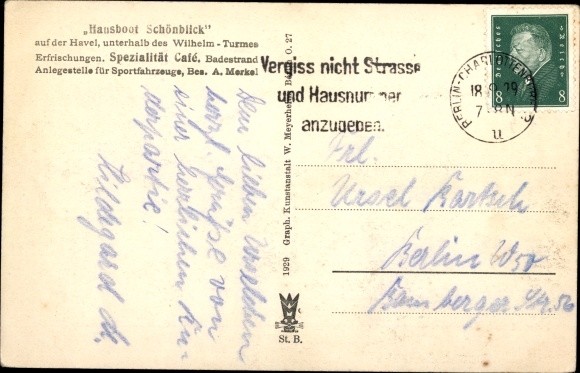 „Hausboot Schönblick"
auf der Havel, unterhalb des Wilhelm-Turmes
Erfrischungen. Spezialität Café, Badestrand
Anlegestelle für Sportfahrzeuge, Bes. A. Merkel
Dem lieben Urselchen
herzl. Grüße von
einer herrlichen Ru-
derpartie!
Hildegard M.
1929 Graph. Kunstanstalt W. Meyerheim, Berlin O. 27
St. B.
Vergiss nicht Strasse
und Hausnummer
anzugeben.
BERLIN-CHARLOTTENBURG
18. 29
7-8N
u
Deutsches Reich
8 8
Frl.
Ursel Kartsch
Berlin W50
Bamberger Str. 56